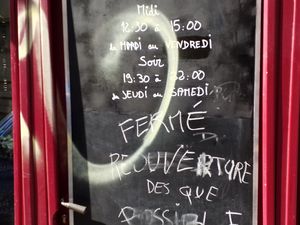 Midi
12:30 à 15:00
du MARDI au VENDREDI
Soir
19:30 à 22:00
du JEUDI au SAMEDI
FERMÉ
REOUVERTURE
DES QUE
POSSIBLE